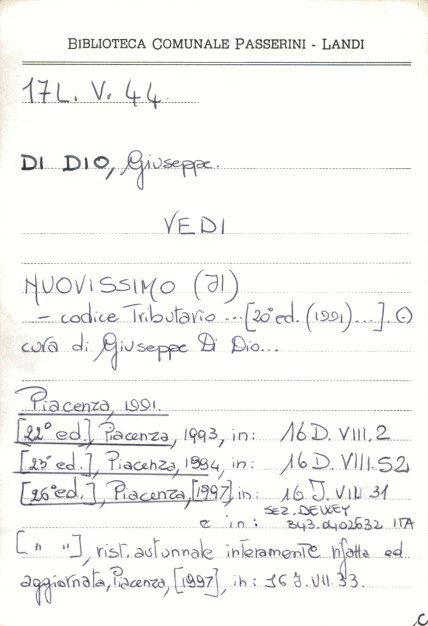 BIBLIOTECA COMUNALE PASSERINI - LANDI
17L. V. 44
DI DIO, Giuseppe.
VEDI
NUOVISSIMO (Il)
- codice Tributario ... [20° ed. (1991)....]. (-)
cura di Giuseppe Di Dio...
Piacenza, 1991.
[22° ed.], Piacenza, 1993, in: 16 D. VIII. 2
[23° ed.], Piacenza, 1994, in: 16 D. VIII. 52
[26° ed.], Piacenza, [1997], in: 16 J. VII. 31
SEZ. DEWEY
e in: 343.0402632 ITA
[" "], rist. autunnale interamente rifatta ed
aggiornata, Piacenza, [1997], in: 16 J. VII. 33.